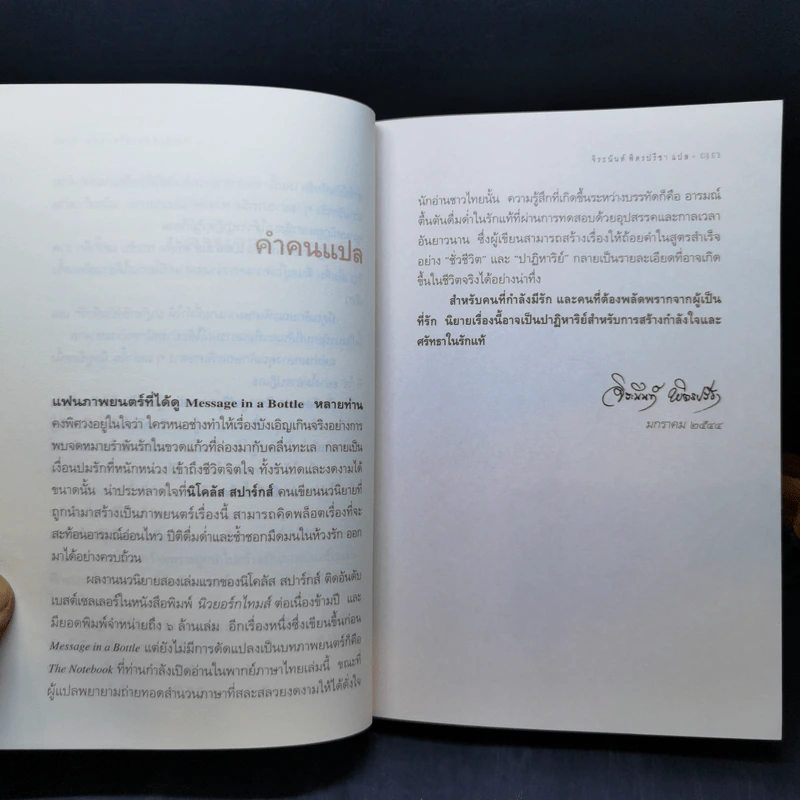 คำคนแปล
แฟนภาพยนตร์ที่ได้ดู Message in a Bottle หลายท่าน
คงพิศวงอยู่ในใจว่า ใครหนอช่างทำให้เรื่องบังเอิญเกินจริงอย่างการ
พบจดหมายรำพันรักในขวดแก้วที่ล่องมากับคลื่นทะเล กลายเป็น
เงื่อนปมรักที่หนักหน่วง เข้าถึงชีวิตจิตใจ ทั้งรันทดและงดงามได้
ขนาดนั้น น่าประหลาดใจที่นิโคลัส สปาร์กส์ คนเขียนนวนิยายที่
ถูกนำมาสร้างเป็นภาพยนตร์เรื่องนี้ สามารถคิดพล็อตเรื่องที่จะ
สะท้อนอารมณ์อ่อนไหว ปีติดื่มด่ำและช้ำชอกมืดมนในห้วงรัก ออก
มาได้อย่างครบถ้วน
ผลงานนวนิยายสองเล่มแรกของนิโคลัส สปาร์กส์ ติดอันดับ
เบสต์เซลเลอร์ในหนังสือพิมพ์ นิวยอร์กไทมส์ ต่อเนื่องข้ามปี และ
มียอดพิมพ์จำหน่ายถึง ๖ ล้านเล่ม อีกเรื่องหนึ่งซึ่งเขียนขึ้นก่อน
Message in a Bottle แต่ยังไม่มีการดัดแปลงเป็นบทภาพยนตร์ก็คือ
The Notebook ที่ท่านกำลังเปิดอ่านในพากย์ภาษาไทยเล่มนี้ ขณะที่
ผู้แปลพยายามถ่ายทอดสำนวนภาษาที่สละสลวยงดงามให้ได้ดั่งใจ
จิระนันท์ พิตรปรีชา แปล -
นักอ่านชาวไทยนั้น ความรู้สึกที่เกิดขึ้นระหว่างบรรทัดก็คือ อารมณ์
ตื้นตันดื่มด่ำในรักแท้ที่ผ่านการทดสอบด้วยอุปสรรคและกาลเวลา
อันยาวนาน ซึ่งผู้เขียนสามารถสร้างเรื่องให้ถ้อยคำในสูตรสำเร็จ
อย่าง “ชั่วชีวิต” และ “ปาฏิหาริย์” กลายเป็นรายละเอียดที่อาจเกิด
ขึ้นในชีวิตจริงได้อย่างน่าทึ่ง
สำหรับคนที่กำลังมีรัก และคนที่ต้องพลัดพรากจากผู้เป็น
ที่รัก นิยายเรื่องนี้อาจเป็นปาฏิหาริย์สำหรับการสร้างกำลังใจและ
ศรัทธาในรักแท้
จิระนันท์ พิตรปรีชา
มกราคม ๒๕๔๔